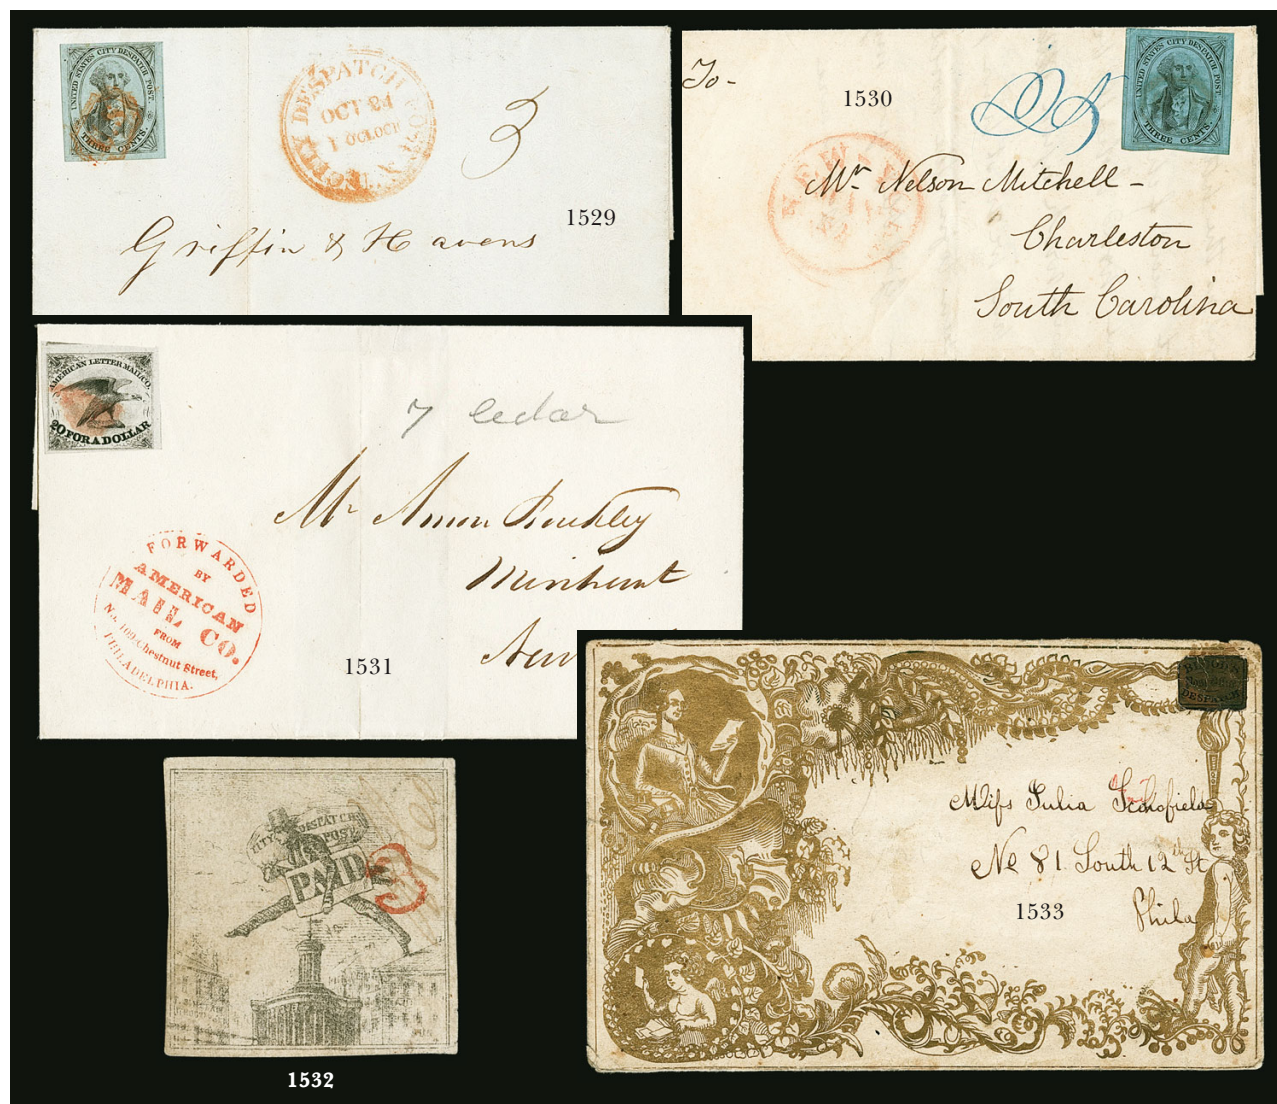 UNITED STATES CITY DESPATCH POST.
THREE CENTS.
CITY DESPATCH POST N.Y.
OCT 24
1 O'CLOCK
3
1529
Griffin & Havens
To-
1530
UNITED STATES CITY DESPATCH POST.
THREE CENTS.
NEW-YORK
Mr. Nelson Mitchell -
Charleston
South Carolina
AMERICAN LETTER MAIL CO.
20 FOR A DOLLAR
7 cedar
Mr
New
FORWARDED
BY
AMERICAN
MAIL CO.
FROM
No. 109 Chestnut Street,
PHILADELPHIA.
1531
CITY DESPATCH
POST
PAID
3
1532
DESPATCH
Miss Julia Scholefield
No 81 South 12th St
1533
Phila